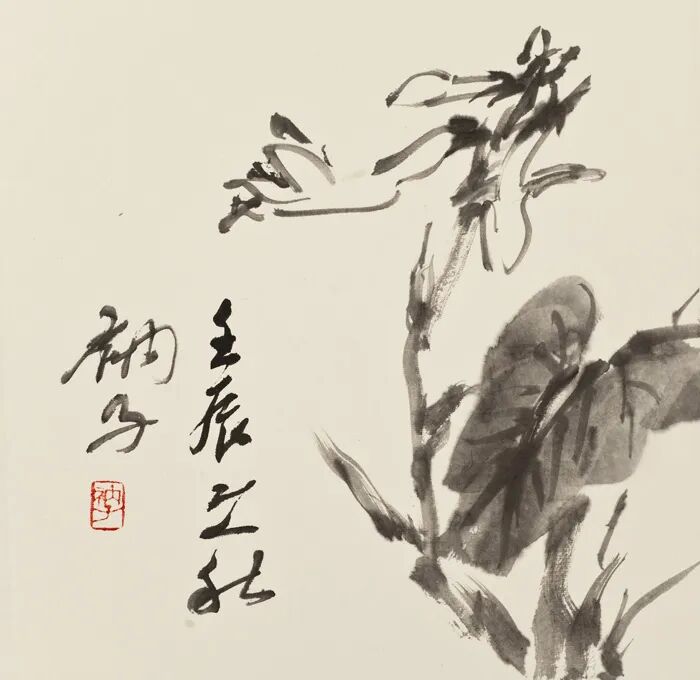 壬辰之秋
衲子